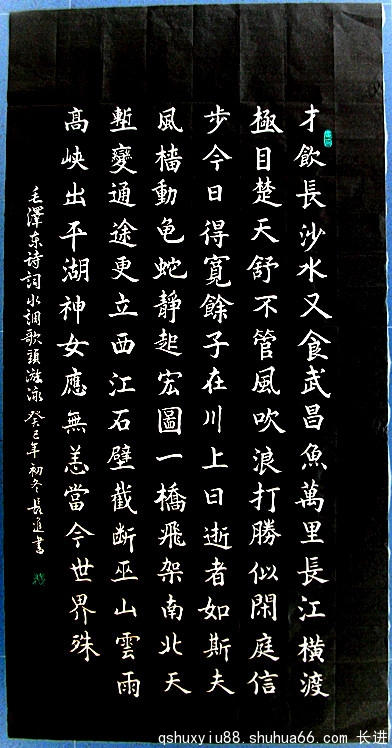 才飲長沙水又食武昌魚萬里長江橫渡
極目楚天舒不管風吹浪打勝似閑庭信
步今日得寬餘子在川上曰逝者如斯夫
風檣動龟蛇靜起宏圖一橋飛架南北天
塹變通途更立西江石壁截断巫山雲雨
高峽出平湖神女應無恙當今世界殊
毛澤东詩詞水調歌頭游泳 癸巳年初冬長進書
qshuxyiu88.shuhua66.com 长进